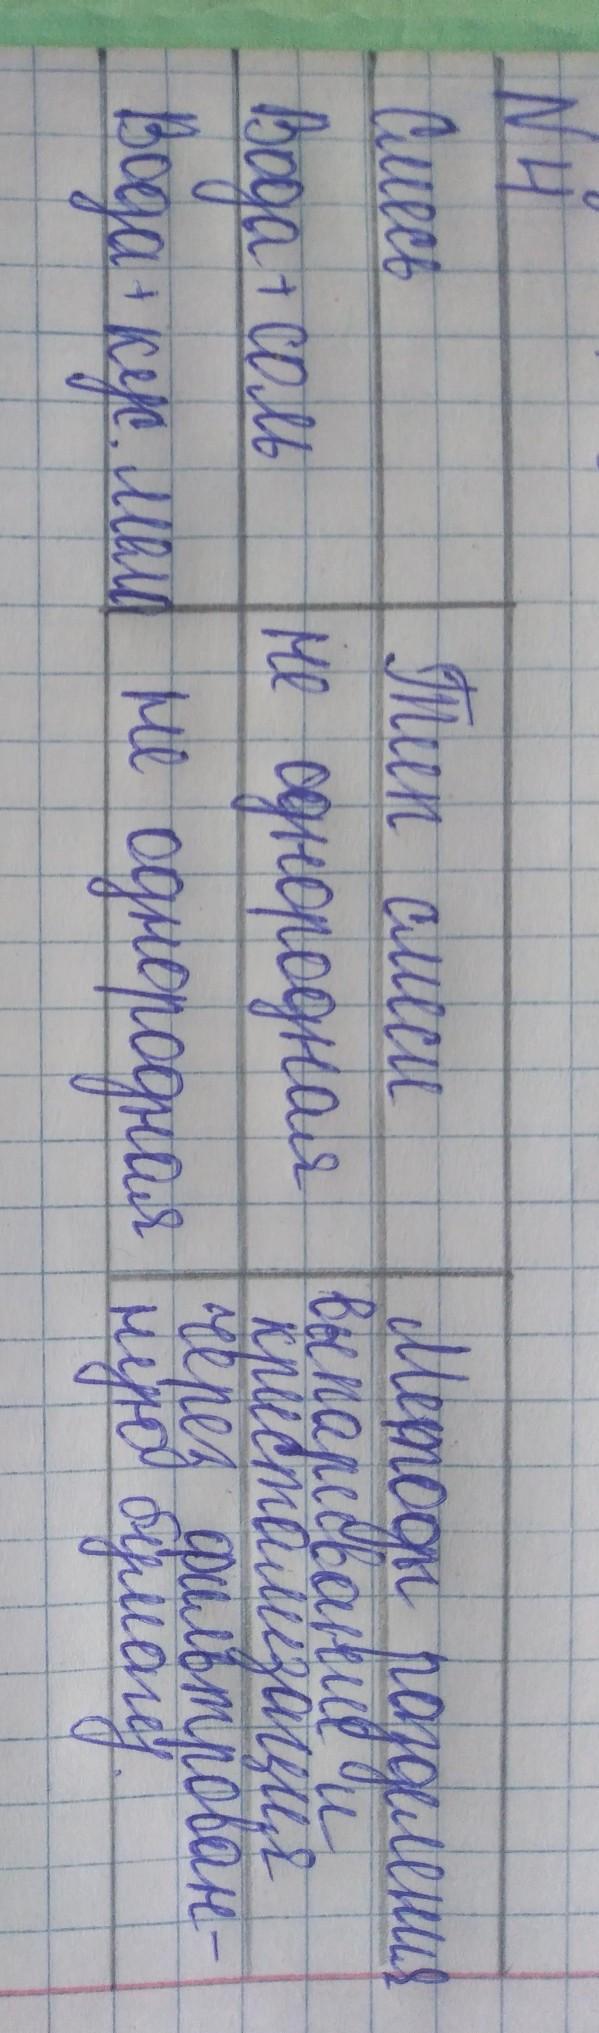 N 4
Смесь Тип смеси Методы разделения
Вода + соль не однородная выпаревание и
кристализация
Вода + кус. мела не однородная через фильтрован-
ную бумагу.